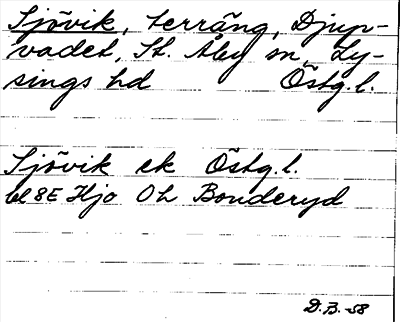 Sjövik, terräng, Djup-
vadet, St. Åby sn, Ly-
sings hd Östg. l.
Sjövik ek Östg. l.
bl 8E Hjo OL Bonderyd
D.B.-58